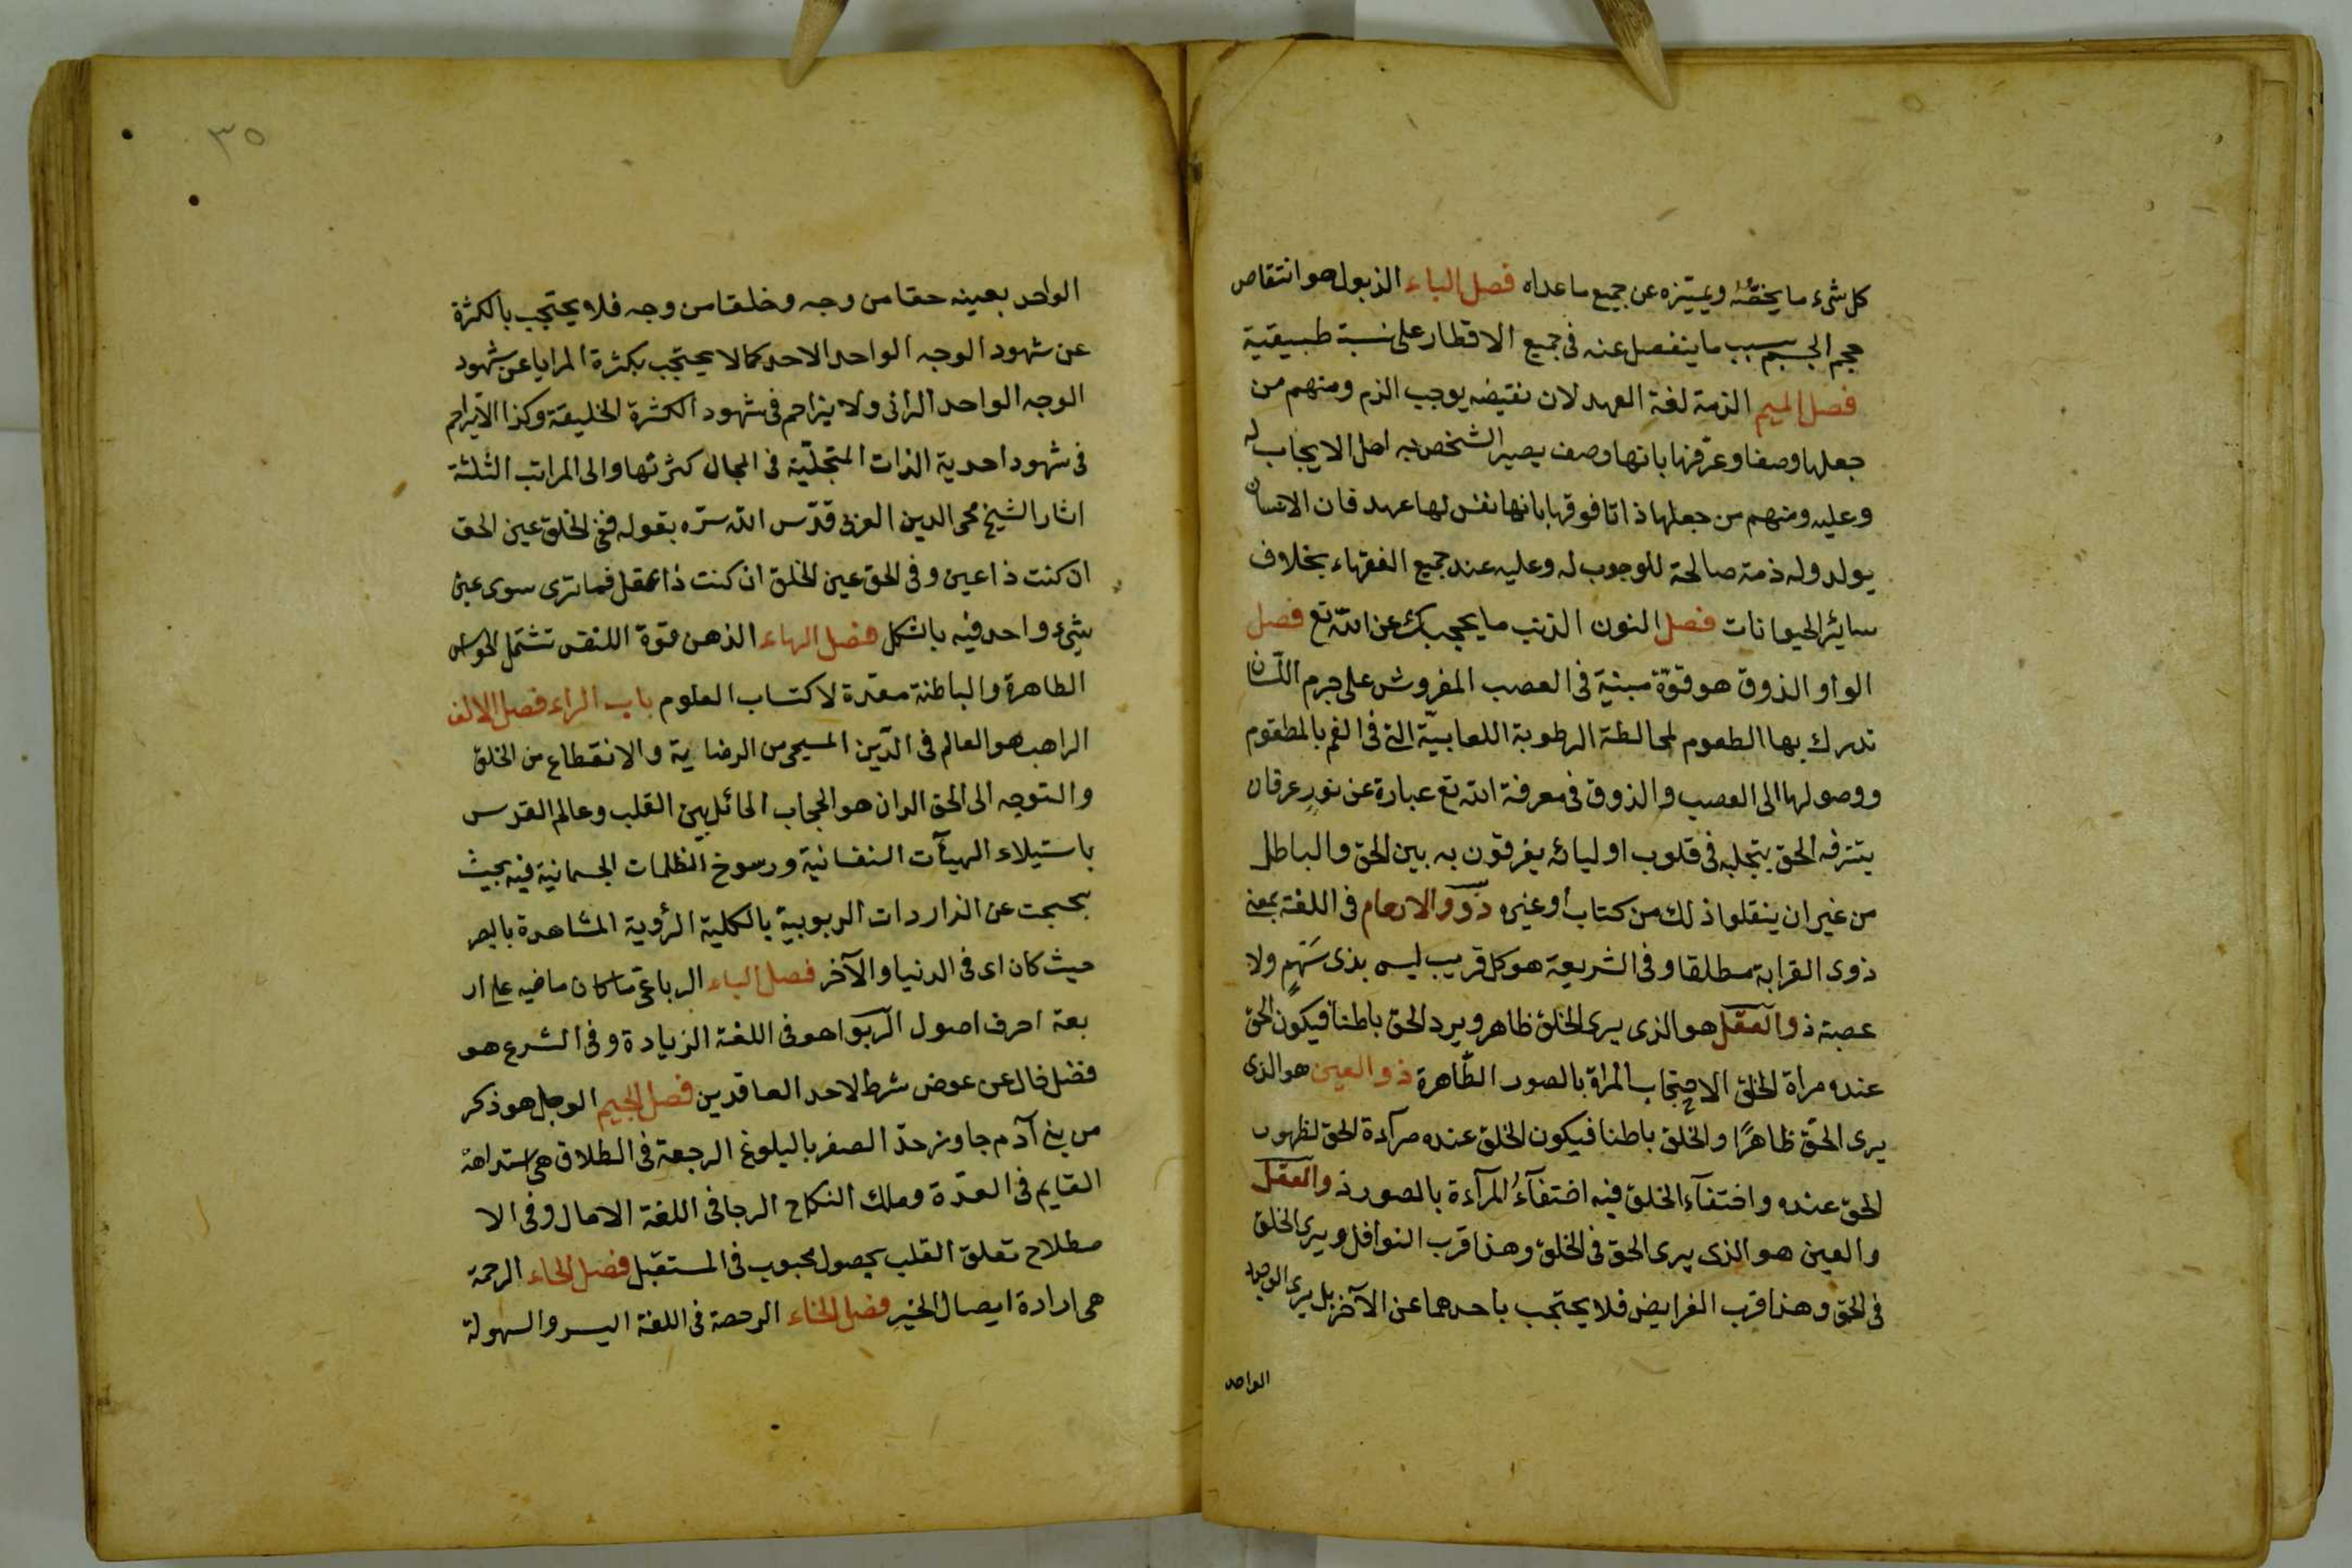 كل شىء ما يخصّه ويميّزه عن جميع ما عداه فصل الباء الذبول هو انتقاص
حجم الجسم بسبب ما ينفصل عنه فى جميع الاقطار على نسبة طبيقية
فصل الميم الذمة لغة العهد لان نقيضه يوجب الذم ومنهم من
جعلها وصفا وعرّفها بانها وصف يصير الشخص به اهل الايجاب له
وعليه ومنهم من جعلها ذاتا فوقها بانها نفس لها عهد فان الانسان
يولد وله ذمة صالحة للوجوب له وعليه عند جميع الفقهاء بخلاف
سائر الحيوانات فصل النون الذنب ما يحجبك عن الله تع فصل
الواو الذوق هو قوّة مبنية فى العصب المفروش على جرم اللسان
تدرك بها الطعوم لمخالطة الرطوبة اللعابيّة التى فى الفم بالمطعوم
ووصولها الى العصب والذوق فى معرفة الله تع عبارة عن نور عرفان
يتنزفه الحق بتجليه فى قلوب اوليائه يفرقون به بين الحق والباطل
من غير ان ينقلوا ذلك من كتاب أو غيره ذوو الارحام فى اللغة بمعنى
ذوى القرابة مطلقا وفى الشريعة هو كل قريب ليس بذى سَهْمٍ ولا
عصبة ذو العقل هو الذى يرى الخلق ظاهر ويرد الحق باطناً فيكون الحق
عنده مرأة الخلق الاحتجاب المراة بالصور الظّاهرة ذو العين هو الذى
يرى الحقّ ظاهرًا والخلق باطنا فيكون الخلق عنده مرآءة الحق لظهور
الحق عنده واختفآء الخلق فيه اختفآءُ المرآءة بالصور ذو العقل
والعين هو الذى يرى الحق فى الخلق وهذا قرب النوافل ويرى الخلق
فى الحق وهذا قرب الفرايض فلا يحتجب باحدهما عن الآخر بل يرى الوجود
الواحد
٣٥
الواحد بعينه حقا من وجه وخلقا من وجه فلا يحتجب بالكثرة
عن شهود الوجه الواحد الاحد كما لا يحتجب بكثرة المرايا عن شهود
الوجه الواحد الرائى ولا يزاحم فى شهود الكثرة الخليقة وكذا لا يزاحم
فى شهود احدية الذات المتجلّية فى المجال كثرتها والى المراتب الثلثة
اشار الشيخ محى الدين العربى قدّس الله سرّه بقوله ففى الخلق عين الحق
ان كنت ذا عين وفى الحق عين الخلق ان كنت ذا عقل فما ترى سوى عين
شىء واحد فيه بالشكل فصل الهاء الذهن قوة اللنفس تشتمل الحواس
الظاهرة والباطنة معدّة لاكتساب العلوم باب الراء فصل الالف
الراهب هو العالم فى الدّين المسيحى من الرضاية والانقطاع من الخلق
والتوجه الى الحق الران هو الحجاب الحائل بين القلب وعالم القدس
باستيلاء الهيآت النفسانية ورسوخ الظلمات الجسمانية فيه بحيث
يحجب عن الذاردات الربوبية بالكلية الرؤية المشاهدة بالبصر
حيث كان اى فى الدنيا والآخر فصل الباء الرباعى ما كان ماضيه على ار
بعة احرف اصول الربوا هو فى اللغة الزيادة وفى الشرع هو
فضل خال عن عوض شرط لاحد العاقدين فصل الجيم الوجل هو ذكر
من بنى آدم جاوز حدّ الصغر بالبلوغ الرجعة فى الطلاق هى استدامة
القايم فى العدّة وملك النكاح الرجا فى اللغة الامال وفى الا
صطلاح تعلق القلب بحصول محبوب فى المستقبل فصل الحاء الرحمة
هى ارادة ايصال الخير فصل الخاء الرخصة فى اللغة اليسر والسهولة